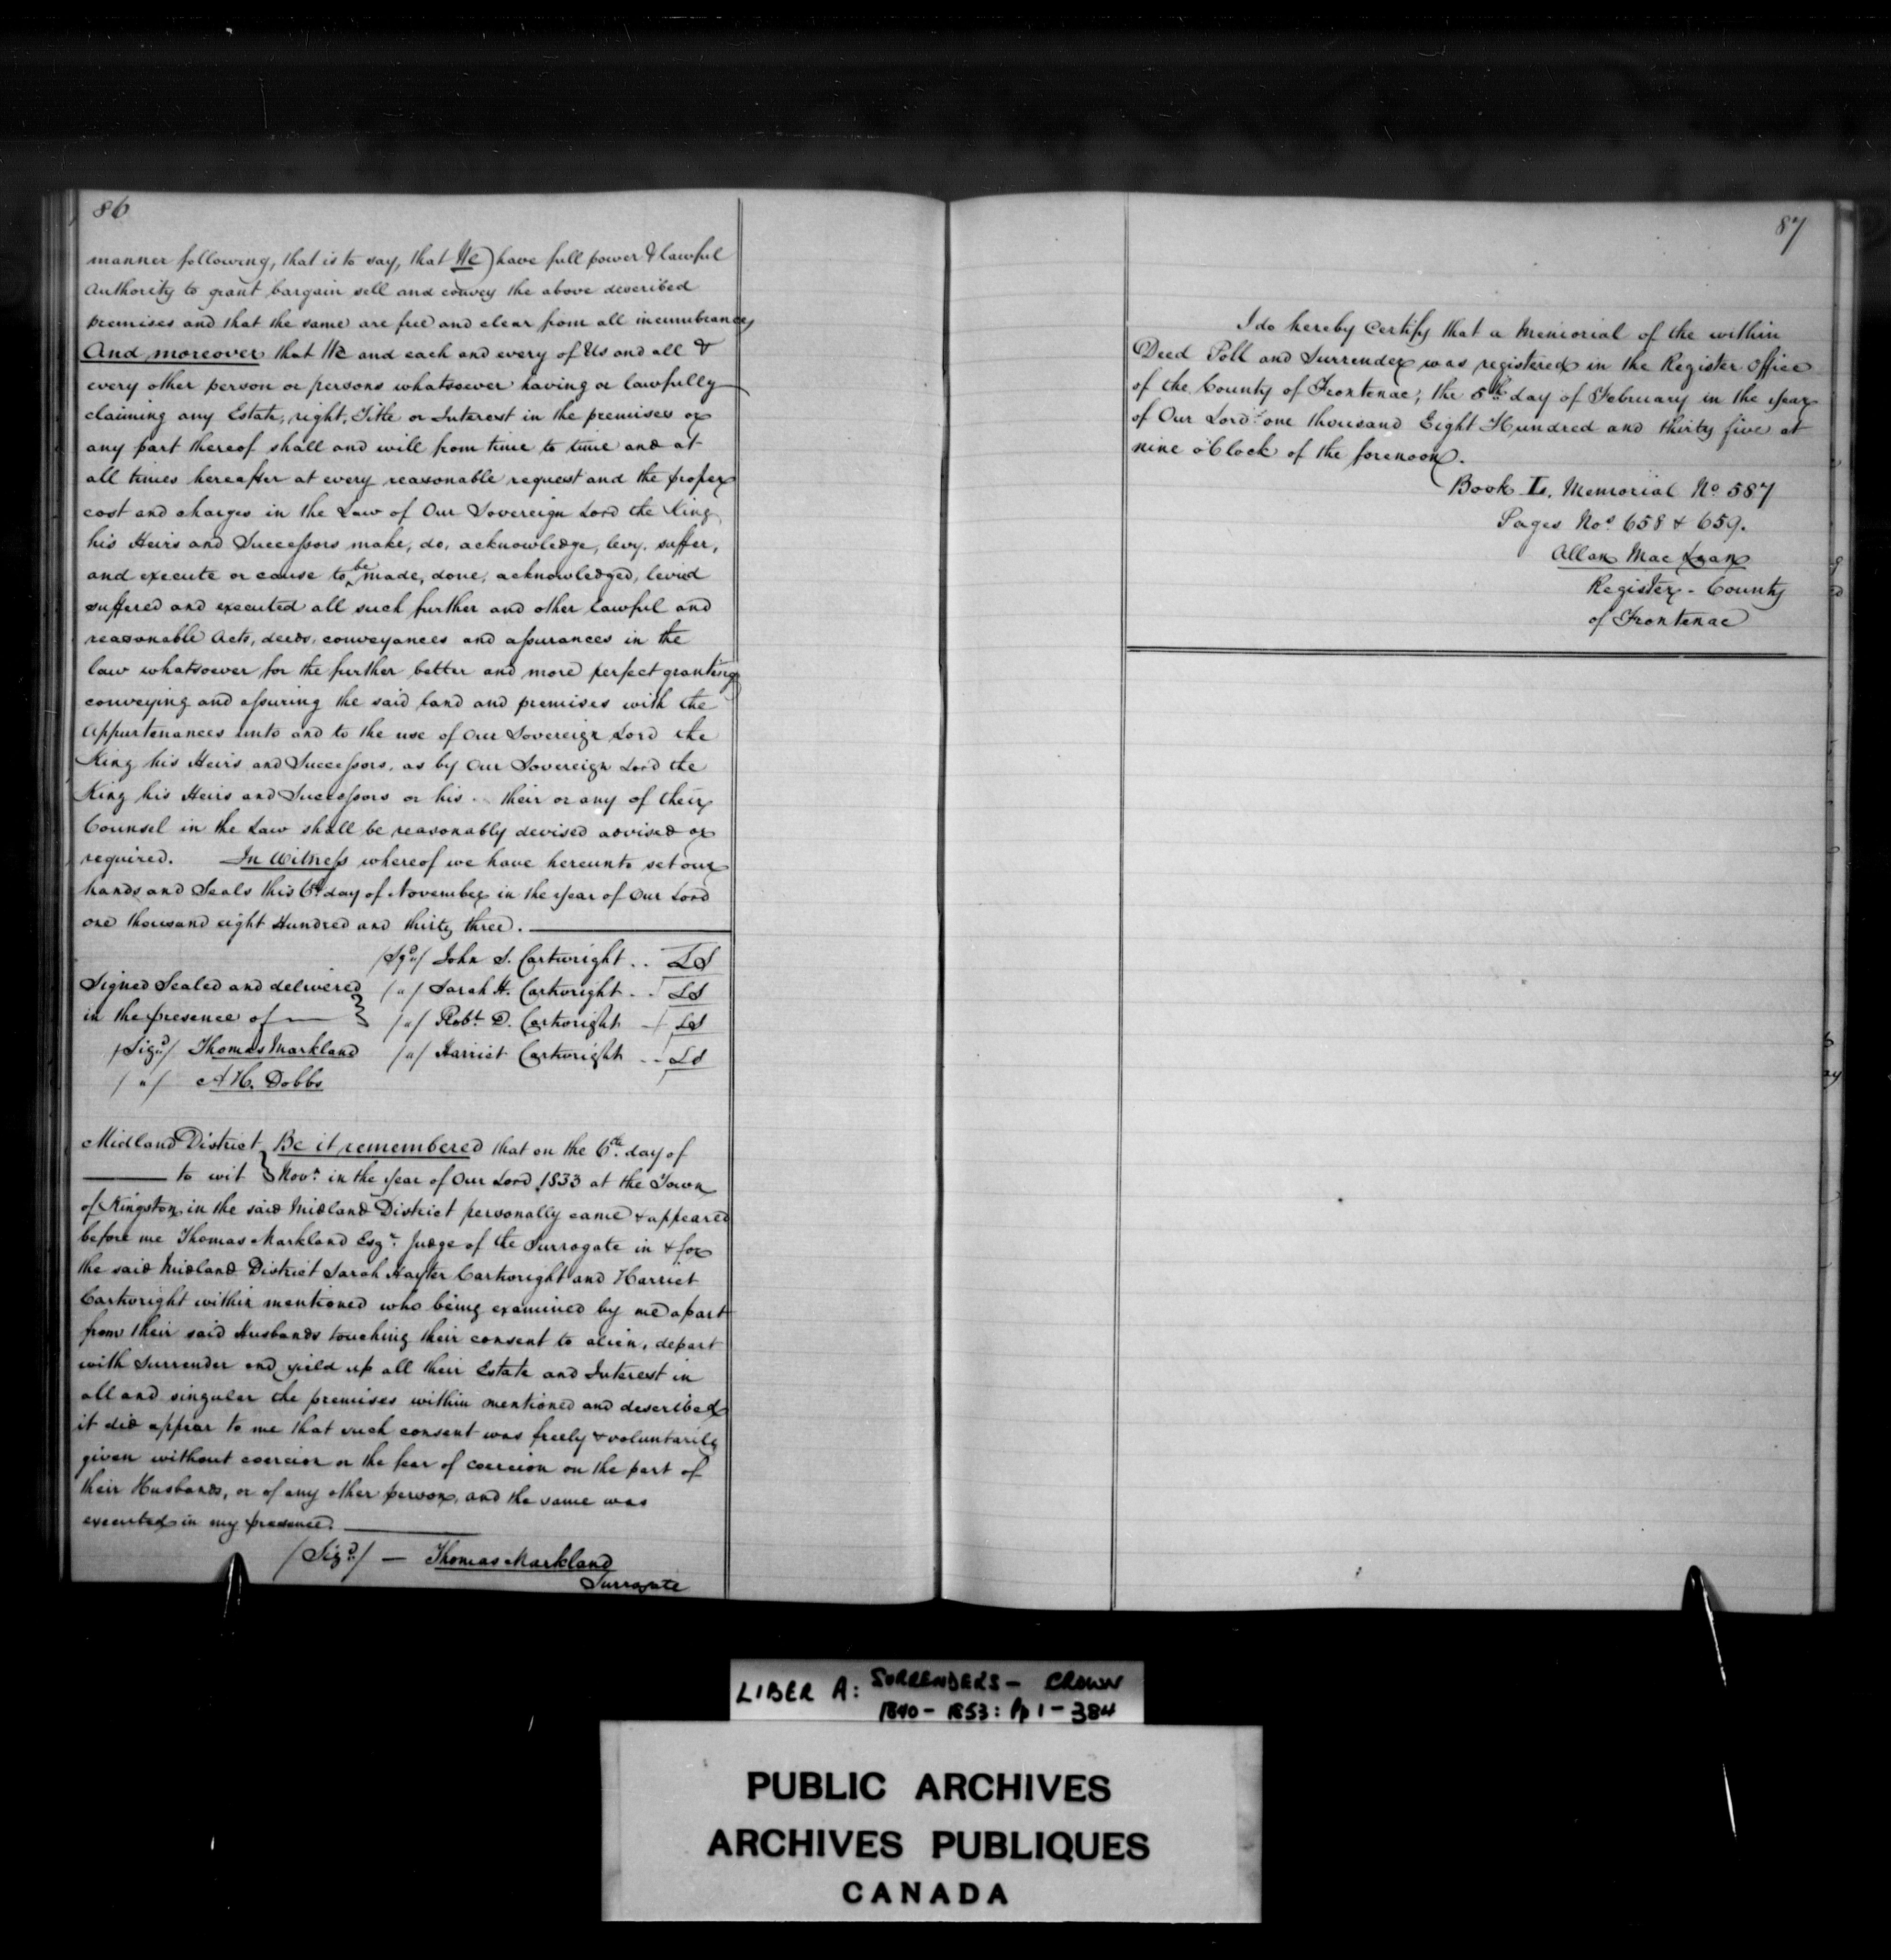 86
manner following, that is to say, that We have full power & lawful
Authority to grant bargain sell and convey the above described
premises and that the same are free and clear from all incumbrances
And moreover that We and each and every of Us and all &
every other person or persons whatsoever having or lawfully
claiming any Estate, right, Title or Interest in the premises or
any part thereof shall and will from time to time and at
all times hereafter at every reasonable request and the proper
cost and charges in the Law of Our Sovereign Lord the King
his Heirs and Successors make, do, acknowledge, levy, suffer,
and execute or cause to be made, done, acknowledged, levied
suffered and executed all such further and other lawful and
reasonable Acts, deeds, conveyances and assurances in the
law whatsoever for the further better and more perfect granting
conveying and assuring the said land and premises with the
Appurtenances unto and to the use of Our Sovereign Lord the
King his Heirs and Successors, as by Our Sovereign Lord the
King his Heirs and Successors or his their or any of their
Counsel in the Law shall be reasonably devised advised or
required. In Witness whereof we have hereunto set our
hands and Seals this 6th day of November in the year of Our Lord
one thousand eight Hundred and thirty three.
/Sgd/ John S. Cartwright .. LS
Signed Sealed and delivered /"/ Sarah H. Cartwright .. LS
in the presence of /"/ Robt. D. Cartwright LS
/Sigd/ Thomas Markland /"/ Harriet Cartwright .. LS
/"/ A. H. Dobbs
Midland District Be it remembered that on the 6th. day of
to wit } Novr. in the year of Our Lord 1833 at the Town
of Kingston in the said Midland District personally came & appeared
before me Thomas Markland Esqr. Judge of the Surrogate in & for
the said Midland District Sarah Hayter Cartwright and Harriet
Cartwright within mentioned who being examined by me apart
from their said Husbands touching their consent to alien, depart
with Surrender and yield up all their Estate and Interest in
all and singular the premises within mentioned and described
it did appear to me that such consent was freely & voluntarily
given without coercion or the fear of coercion on the part of
their Husbands, or of any other person, and the same was
executed in my presence.
/Sigd/ — Thomas Markland
Surrogate
87
I do hereby Certify that a Memorial of the within
Deed Poll and Surrender was registered in the Register Office
of the County of Frontenac; the 5th day of February in the year
of Our Lord one thousand Eight Hundred and thirty five at
nine o'Clock of the forenoon.
Book L. Memorial No. 587
Pages Nos 658 & 659.
Allan Mac Lean
Register - County
of Frontenac
LIBER A: SURRENDERS - CROWN
1840 - 1853: Pp 1 - 384
PUBLIC ARCHIVES
ARCHIVES PUBLIQUES
CANADA